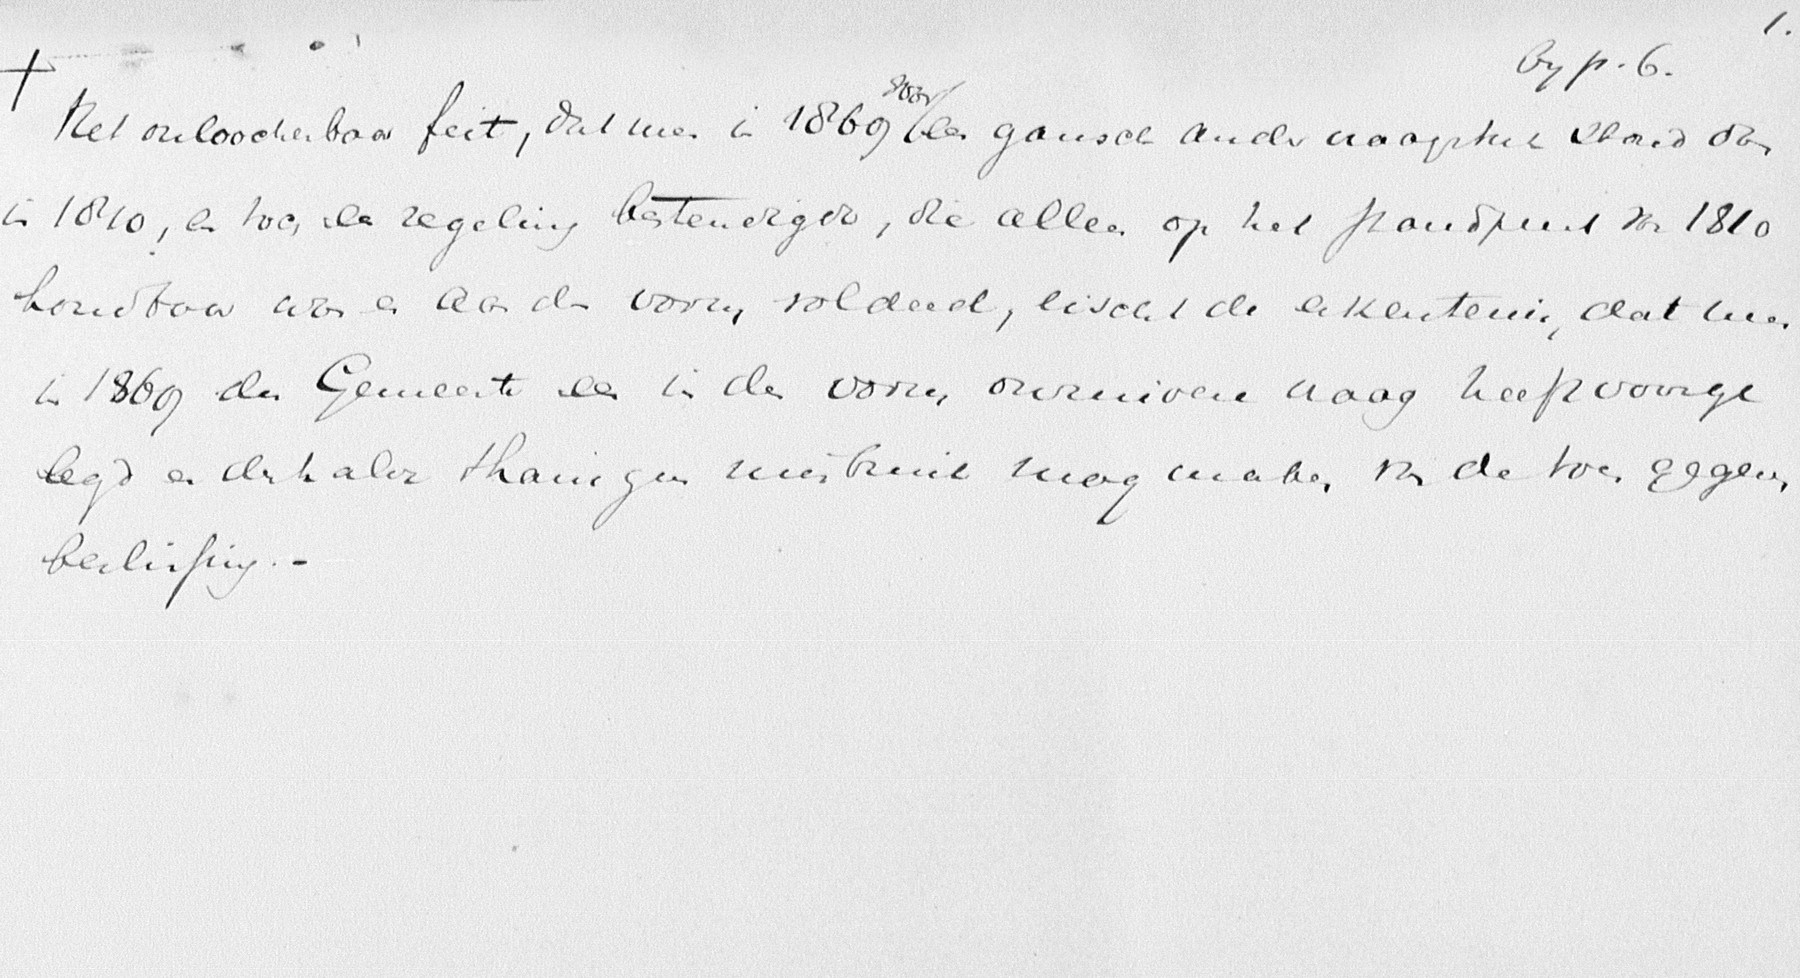 1.
by p. 6.
Het onloochenbaar feit, dat men in 1869 voor een gansch ander vraagstuk stond dan
in 1810, en toch de regeling bestendigde, die alleen op het standpunt van 1810
houdbaar was en aan den vorm voldeed, eischt de erkentenis, dat men
in 1869 der Gemeente een in den vorm onzuivere vraag heeft voorge
legd en derhalve thans geen misbruik mag maken van de toen gegeven
beslissing. -